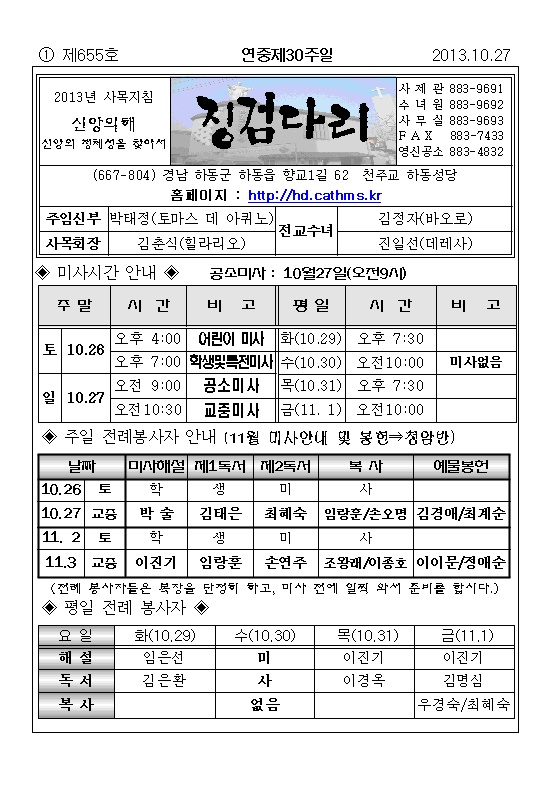 ① 제655호 연중제30주일 2013.10.27
2013년 사목지침
신앙의해
신앙의 정체성을 찾아서
징검다리
사 제 관 883-9691
수 녀 원 883-9692
사 무 실 883-9693
F A X 883-7433
영신공소 883-4832
(667-804) 경남 하동군 하동읍 향교1길 62 천주교 하동성당
홈페이지 : http://hd.cathms.kr
주임신부 박태정(토마스 데 아퀴노) 전교수녀 김정자(바오로)
사목회장 김춘식(힐라리오) 진일선(데레사)
◈ 미사시간 안내 ◈ 공소미사 : 10월27일(오전9시)
주 말 시 간 비 고 평 일 시 간 비 고
토 10.26 오후 4:00 어린이 미사 화(10.29) 오후 7:30
오후 7:00 학생및특전미사 수(10.30) 오전10:00 미사없음
일 10.27 오전 9:00 공소미사 목(10.31) 오후 7:30
오전10:30 교중미사 금(11. 1) 오전10:00
◈ 주일 전례봉사자 안내 (11월 미사안내 및 봉헌⇒청암반)
날짜 미사해설 제1독서 제2독서 복 사 예물봉헌
10.26 토 학 생 미 사
10.27 교중 박 술 김태은 최혜숙 임랑훈/손오명 김경애/최계순
11. 2 토 학 생 미 사
11.3 교중 이진기 임랑훈 손연주 조왕래/이종호 이이문/정애순
(전례 봉사자들은 복장을 단정히 하고, 미사 전에 일찍 와서 준비를 합시다.)
◈ 평일 전례 봉사자 ◈
요 일 화(10.29) 수(10.30) 목(10.31) 금(11.1)
해 설 임은선 미 이진기 이진기
독 서 김은환 사 이경옥 김명심
복 사 없음 우경숙/최혜숙